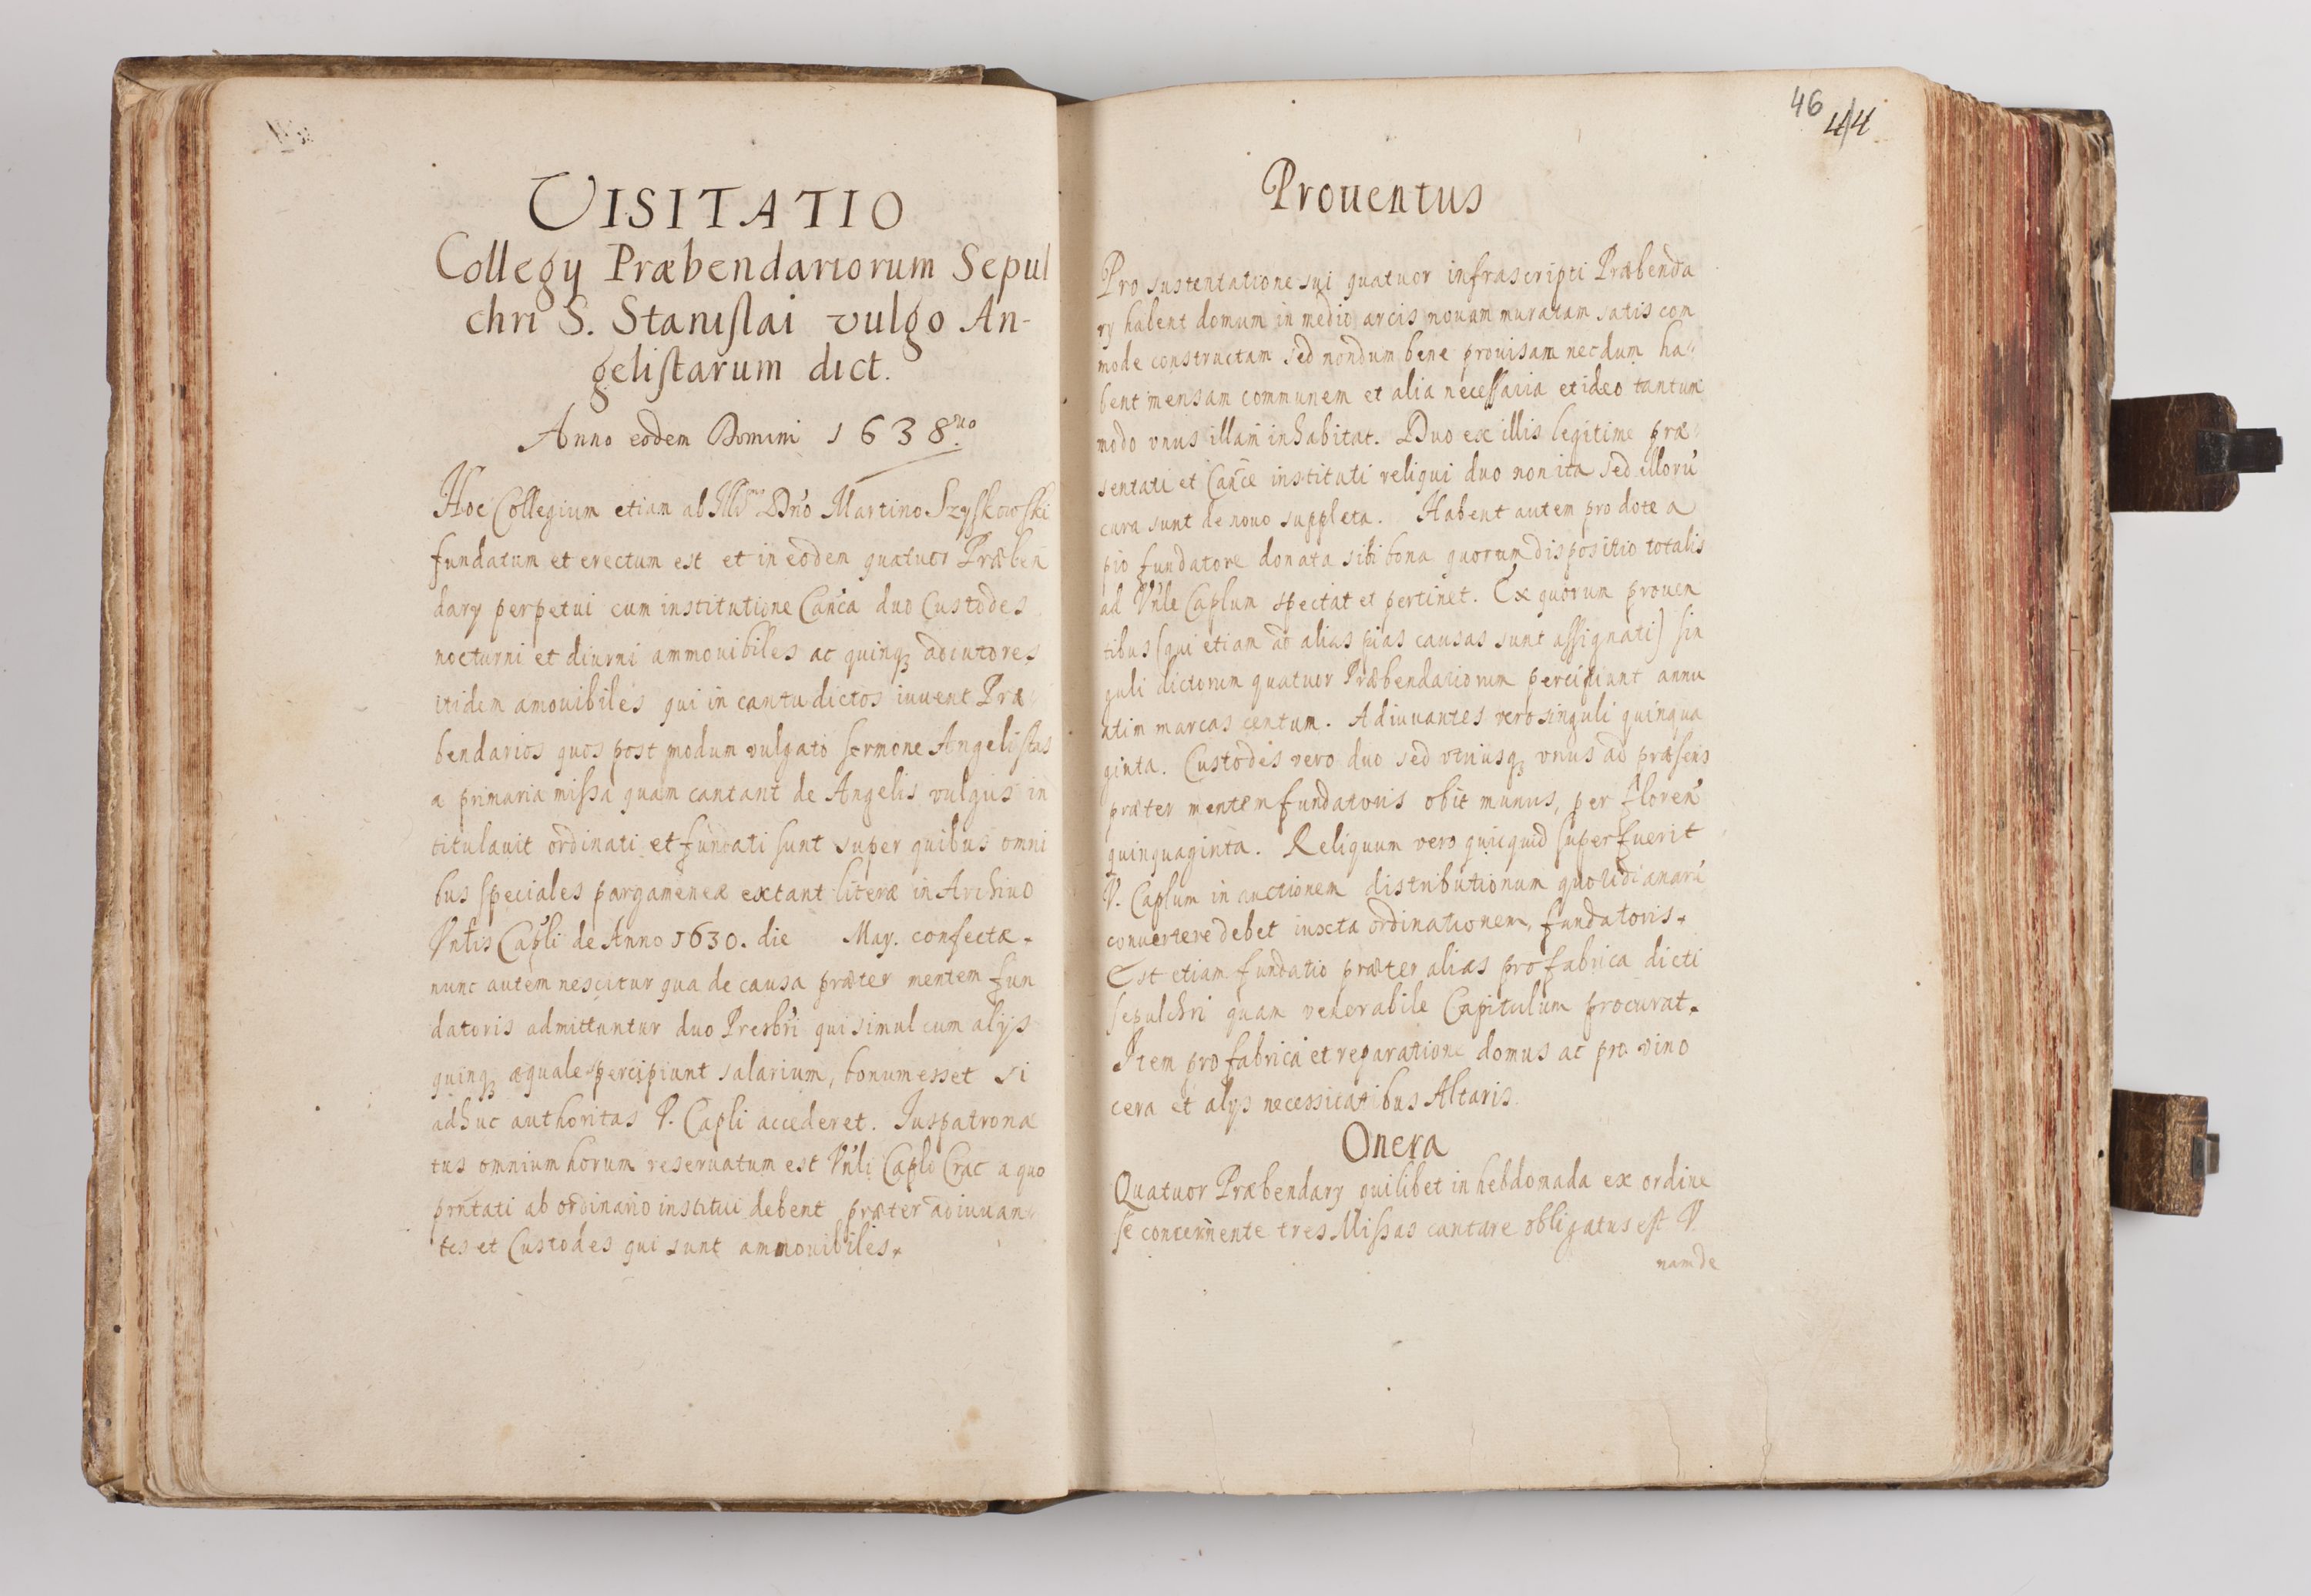 VISITATIO
Collegy Præbendariorum Sepul
chri S. Stanislai vulgo An-
gelistarum dict.
Anno eodem Domini 1638.uo
Hoc Collegium etiam ab Illmo Dno Martino Szyskowski
fundatum et erectum est et in eodem quatuor Præben
dary perpetui cum institutione Canca duo Custodes
nocturni et diurni ammovibiles ac quinq3 adiutores
itidem amouibiles qui in cantu dictos iuuent Præ
bendarios quos post modum vulgato sermone Angelistas
a primaria missa quam cantant de Angelis vulgus in
titulauit ordinati et fundati sunt super quibus omni
bus speciales pargameneæ extant literæ in Archiuo
Vnlis Capli de Anno 1630. die May. confectæ.
nunc autem nescitur qua de causa præter mentem fun
datoris admittuntur duo Presbri qui simul cum alijs
quinq3 æquale percipiunt salarium, bonum esset si
adhuc authoritas V. Capli accederet. Iuspatrona
tus omnium horum reseruatum est Vnli Caplo Crac a quo
prntati ab ordinario institui debent præter adiuuan
tes et Custodes qui sunt ammouibiles.
46 44
Prouentus
Pro sustentatione sui quatuor infrascripti Præbenda
ry habent domum in medio arcis nouam muratam satis com
mode constructam sed nondum bene prouisam necdum ha:
bent mensam communem et alia necessaria et ideo tantum
modo vnus illam inhabitat. Duo ex illis legitime præ
sentati et Cance instituti reliqui duo non ita sed illorū
cura sunt de nouo suppleta. Habent autem pro dote a
pio fundatore donata sibi bona quorum dispositio totalis
ad Vnle Caplum spectat et pertinet. Ex quorum prouen
tibus (qui etiam ad alias pias causas sunt assignati) sin
guli dictorum quatuor Præbendariorum percipiunt annu
atim marcas centum. Adiuuantes vero singuli quinqua
ginta. Custodes vero duo sed vtriusq3 vnus ad præsens
præter mentem fundatoris obit munus, per floren
quinquaginta. Reliquum vero quicquid superfuerit
V. Caplum in auctionem distributionum quotidianarū
conuertere debet iuxta ordinationem fundatoris.
Est etiam fundatio præter alias pro fabrica dicti
sepulchri quam venerabile Capitulum procurat.
Item pro fabrica et reparatione domus ac pro vino
cera et alys necessitatibus Altaris.
Onera
Quatuor Præbendary quilibet in hebdomada ex ordine
se concernente tres Missas cantare obligatus est V.
nam de